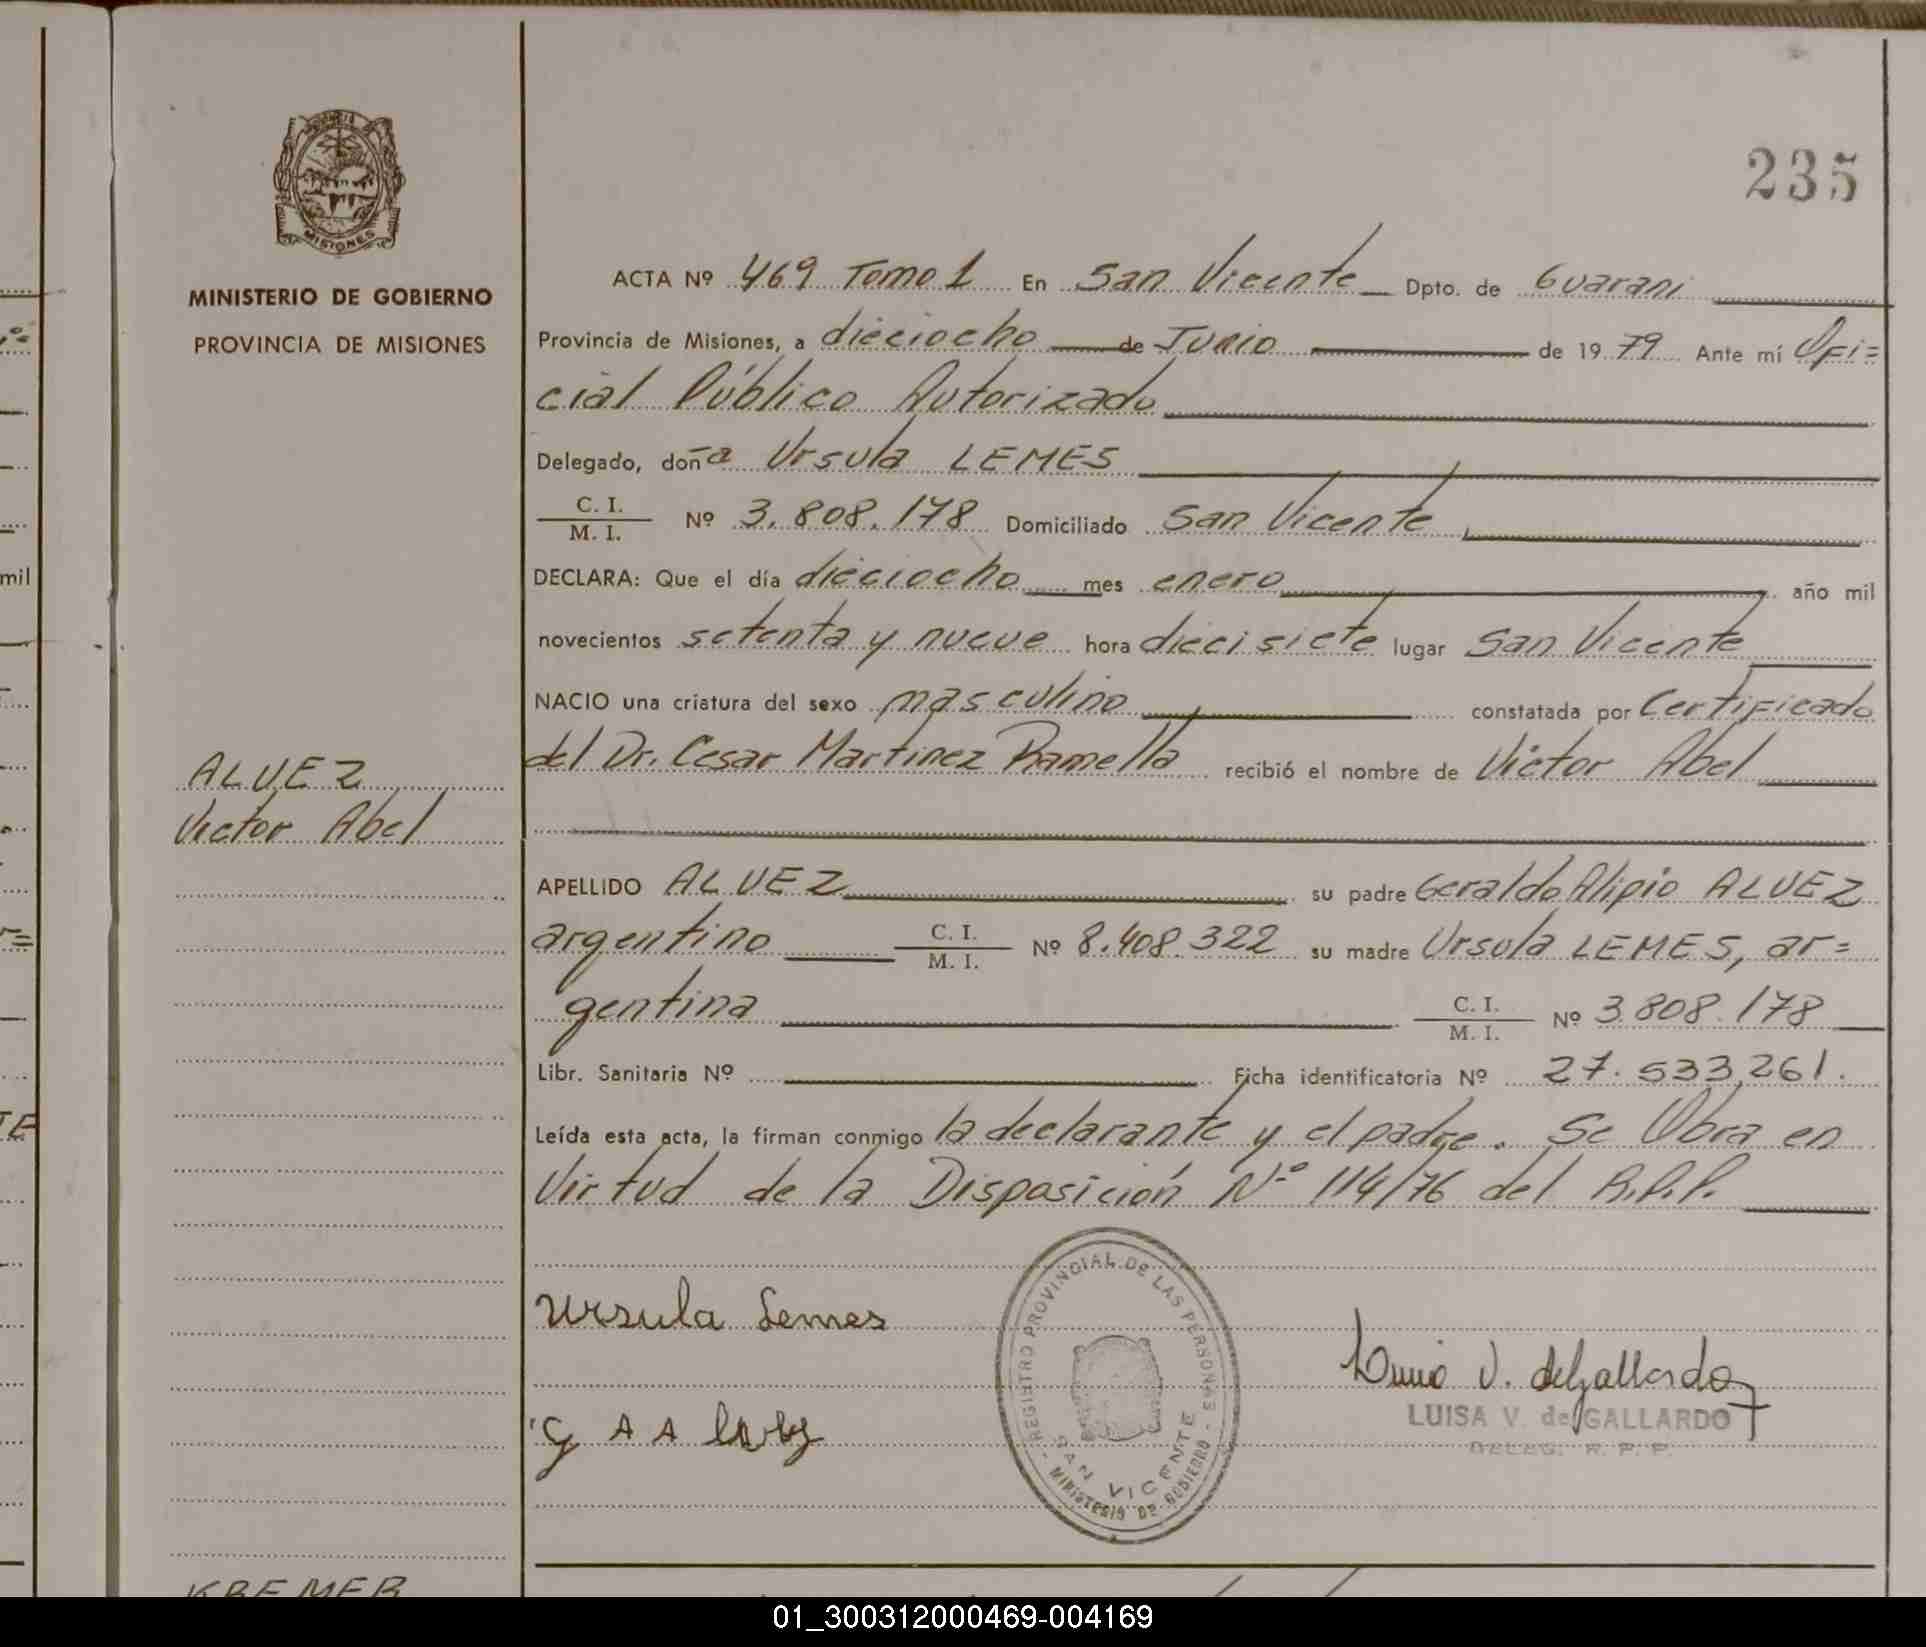 235
MISIONES
MINISTERIO DE GOBIERNO
PROVINCIA DE MISIONES
ACTA Nº 469 Tomo 1 En San Vicente Dpto. de Guarani
Provincia de Misiones, a dieciocho de Junio de 1979 Ante mí Ofi=
cial Público Autorizado
Delegado, doña Ursula LEMES
C. I.
M. I. Nº 3.808.178 Domiciliado San Vicente
DECLARA: Que el día dieciocho mes enero año mil
novecientos setenta y nueve hora diecisiete lugar San Vicente
NACIO una criatura del sexo masculino constatada por Certificado
del Dr. Cesar Martinez Ramella recibió el nombre de Victor Abel
ALVEZ
Victor Abel
APELLIDO ALVEZ su padre Geraldo Alipio ALVEZ
argentino C. I.
M. I. Nº 8.408.322 su madre Ursula LEMES, ar=
gentina C. I.
M. I. Nº 3.808.178
Libr. Sanitaria Nº Ficha identificatoria Nº 27.533.261.
Leída esta acta, la firman conmigo la declarante y el padre. Se Obra en
Virtud de la Disposición Nº 114/76 del R.P.P.
Ursula Lemes
G A A
V. de Gallardo
LUISA V. de GALLARDO
DELEG. R. P. P.
REGISTRO PROVINCIAL DE LAS PERSONAS
SAN VICENTE
MINISTERIO DE GOBIERNO
KREMER
mil
TE
01_300312000469-004169